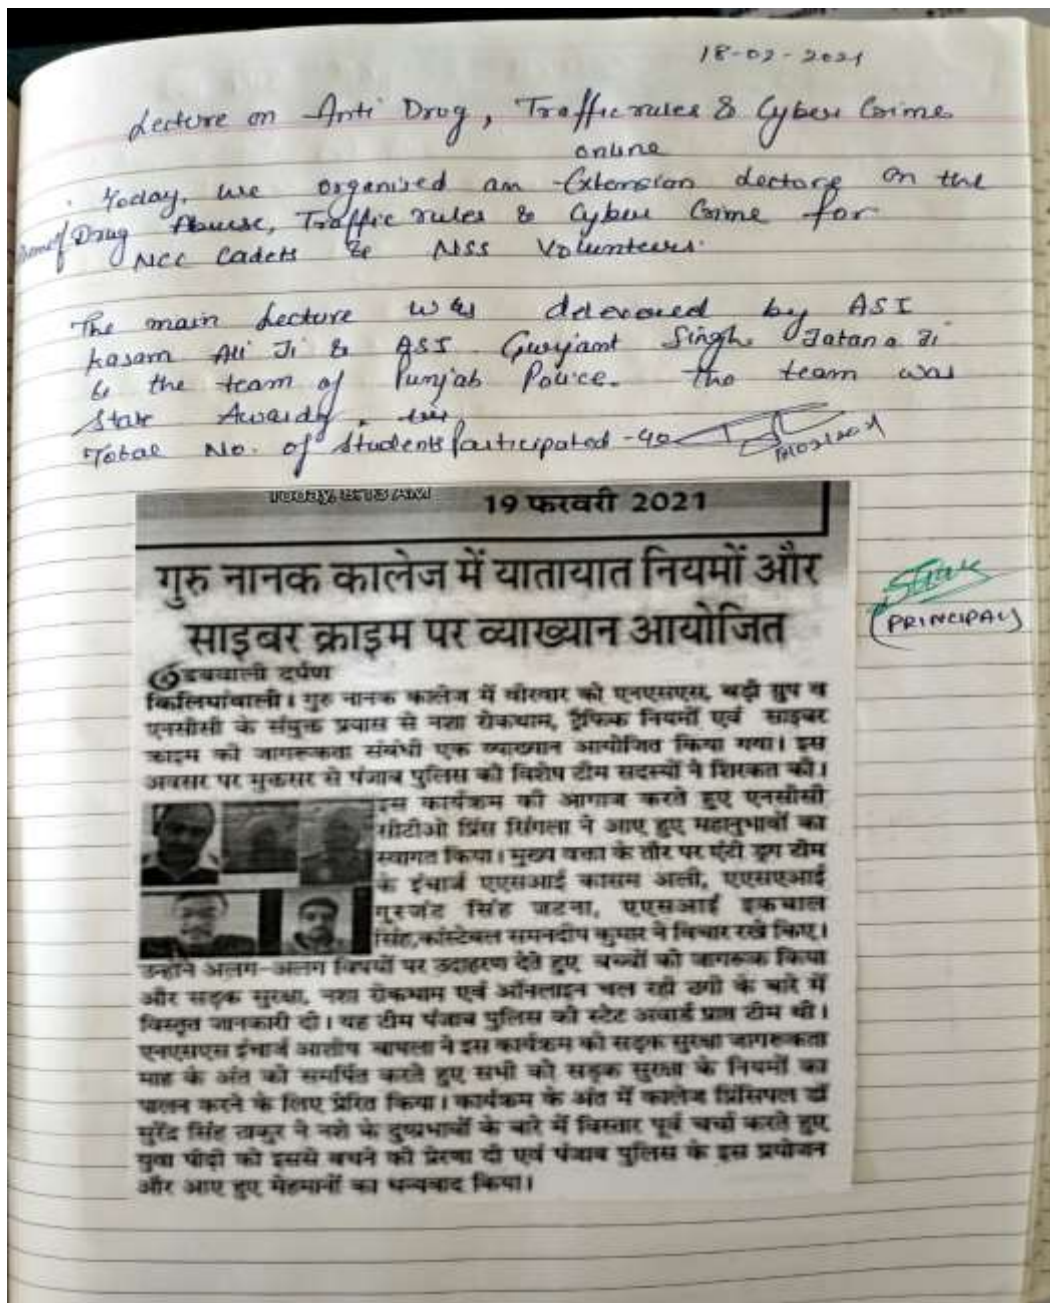 18-02-2021
Lecture on Anti Drug, Traffic rules & Cyber Crime
online
Today, we organised an Extension Lecture on the
theme of Drug Abuse, Traffic rules & Cyber Crime for
NCC Cadets & NSS Volunteers.
The main Lecture was delevered by ASI
Kasam Ali Ji & ASI Gurjant Singh Jatana Ji
& the team of Punjab Police. The team was
State Awardy.
Total No. of Students Participated - 40
Today, 8:13 AM
19 फरवरी 2021
गुरु नानक कालेज में यातायात नियमों और
साइबर क्राइम पर व्याख्यान आयोजित
(PRINCIPAL)
डबवाली दर्पण
किलियांवाली। गुरु नानक कालेज में वीरवार को एनएसएस, बड़ी ग्रुप व
एनसीसी के संयुक्त प्रयास से नशा रोकथाम, ट्रैफिक नियमों एवं साइबर
क्राइम की जागरूकता संबंधी एक व्याख्यान आयोजित किया गया। इस
अवसर पर मुक्तसर से पंजाब पुलिस की विशेष टीम सदस्यों ने शिरकत की।
इस कार्यक्रम की आगाज करते हुए एनसीसी
सीटीओ प्रिंस सिंगला ने आए हुए महानुभावों का
स्वागत किया। मुख्य वक्ता के तौर पर एंटी ड्रग टीम
के इंचार्ज एएसआई कासम अली, एएसएआई
गुरजंट सिंह जटना, एएसआई इकबाल
सिंह,कांस्टेबल समनदीप कुमार ने विचार रखे किए।
उन्होंने अलग-अलग विषयों पर उदाहरण देते हुए बच्चों को जागरूक किया
और सड़क सुरक्षा, नशा रोकथाम एवं ऑनलाइन चल रही ठगी के बारे में
विस्तृत जानकारी दी। यह टीम पंजाब पुलिस की स्टेट अवार्ड प्राप्त टीम थी।
एनएसएस इंचार्ज आशीष बाघला ने इस कार्यक्रम को सड़क सुरक्षा जागरूकता
माह के अंत को समर्पित करते हुए सभी को सड़क सुरक्षा के नियमों का
पालन करने के लिए प्रेरित किया। कार्यक्रम के अंत में कालेज प्रिंसिपल डॉ
सुरेंद्र सिंह ठाकुर ने नशे के दुष्प्रभावों के बारे में विस्तार पूर्व चर्चा करते हुए
युवा पीढ़ी को इससे बचने की प्रेरणा दी एवं पंजाब पुलिस के इस प्रयोजन
और आए हुए मेहमानों का धन्यवाद किया।